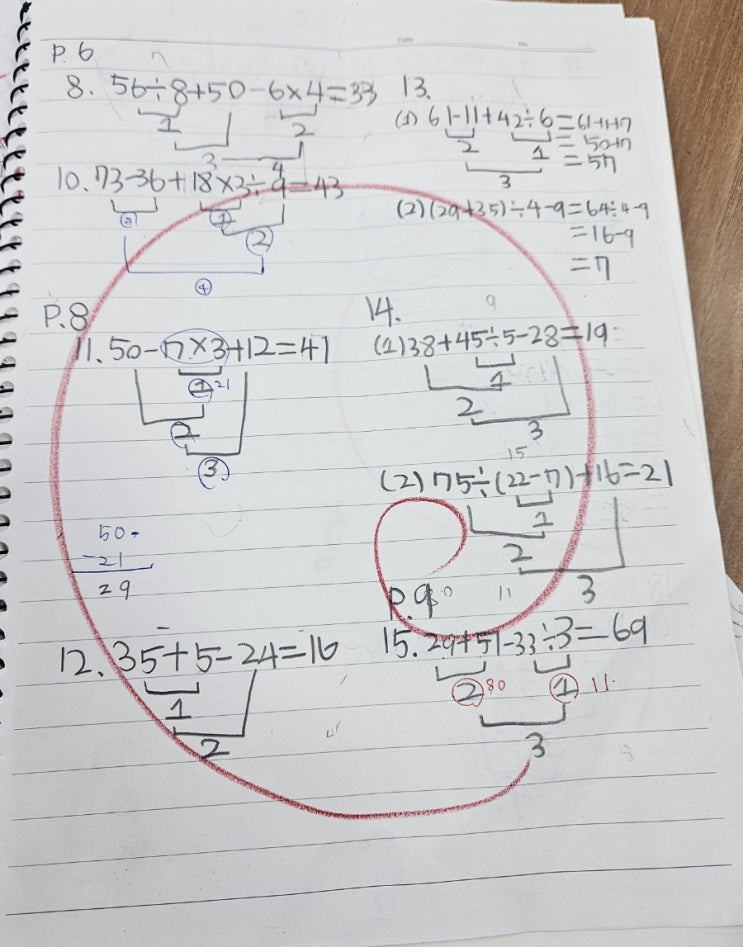 P.6
8. 56÷8+50-6×4=33
1
2
3
4
10. 73-36+18×3÷9=43
③ ①
②
④
P.8
11. 50-7×3+12=41
① 21
②
③
50
-21
29
12. 35+5-24=16
1
2
13.
(1) 61-11+42÷6=61-11+7
2 1 =50+7
=57
3
(2) (29+35)÷4-9=64÷4-9
=16-9
=7
14.
9
(1) 38+45÷5-28=19
1
2
3
15
(2) 75÷(22-7)+16=21
1
2
3
P.9
11
15. 29+51-33÷3=69
② 80 ① 11
3